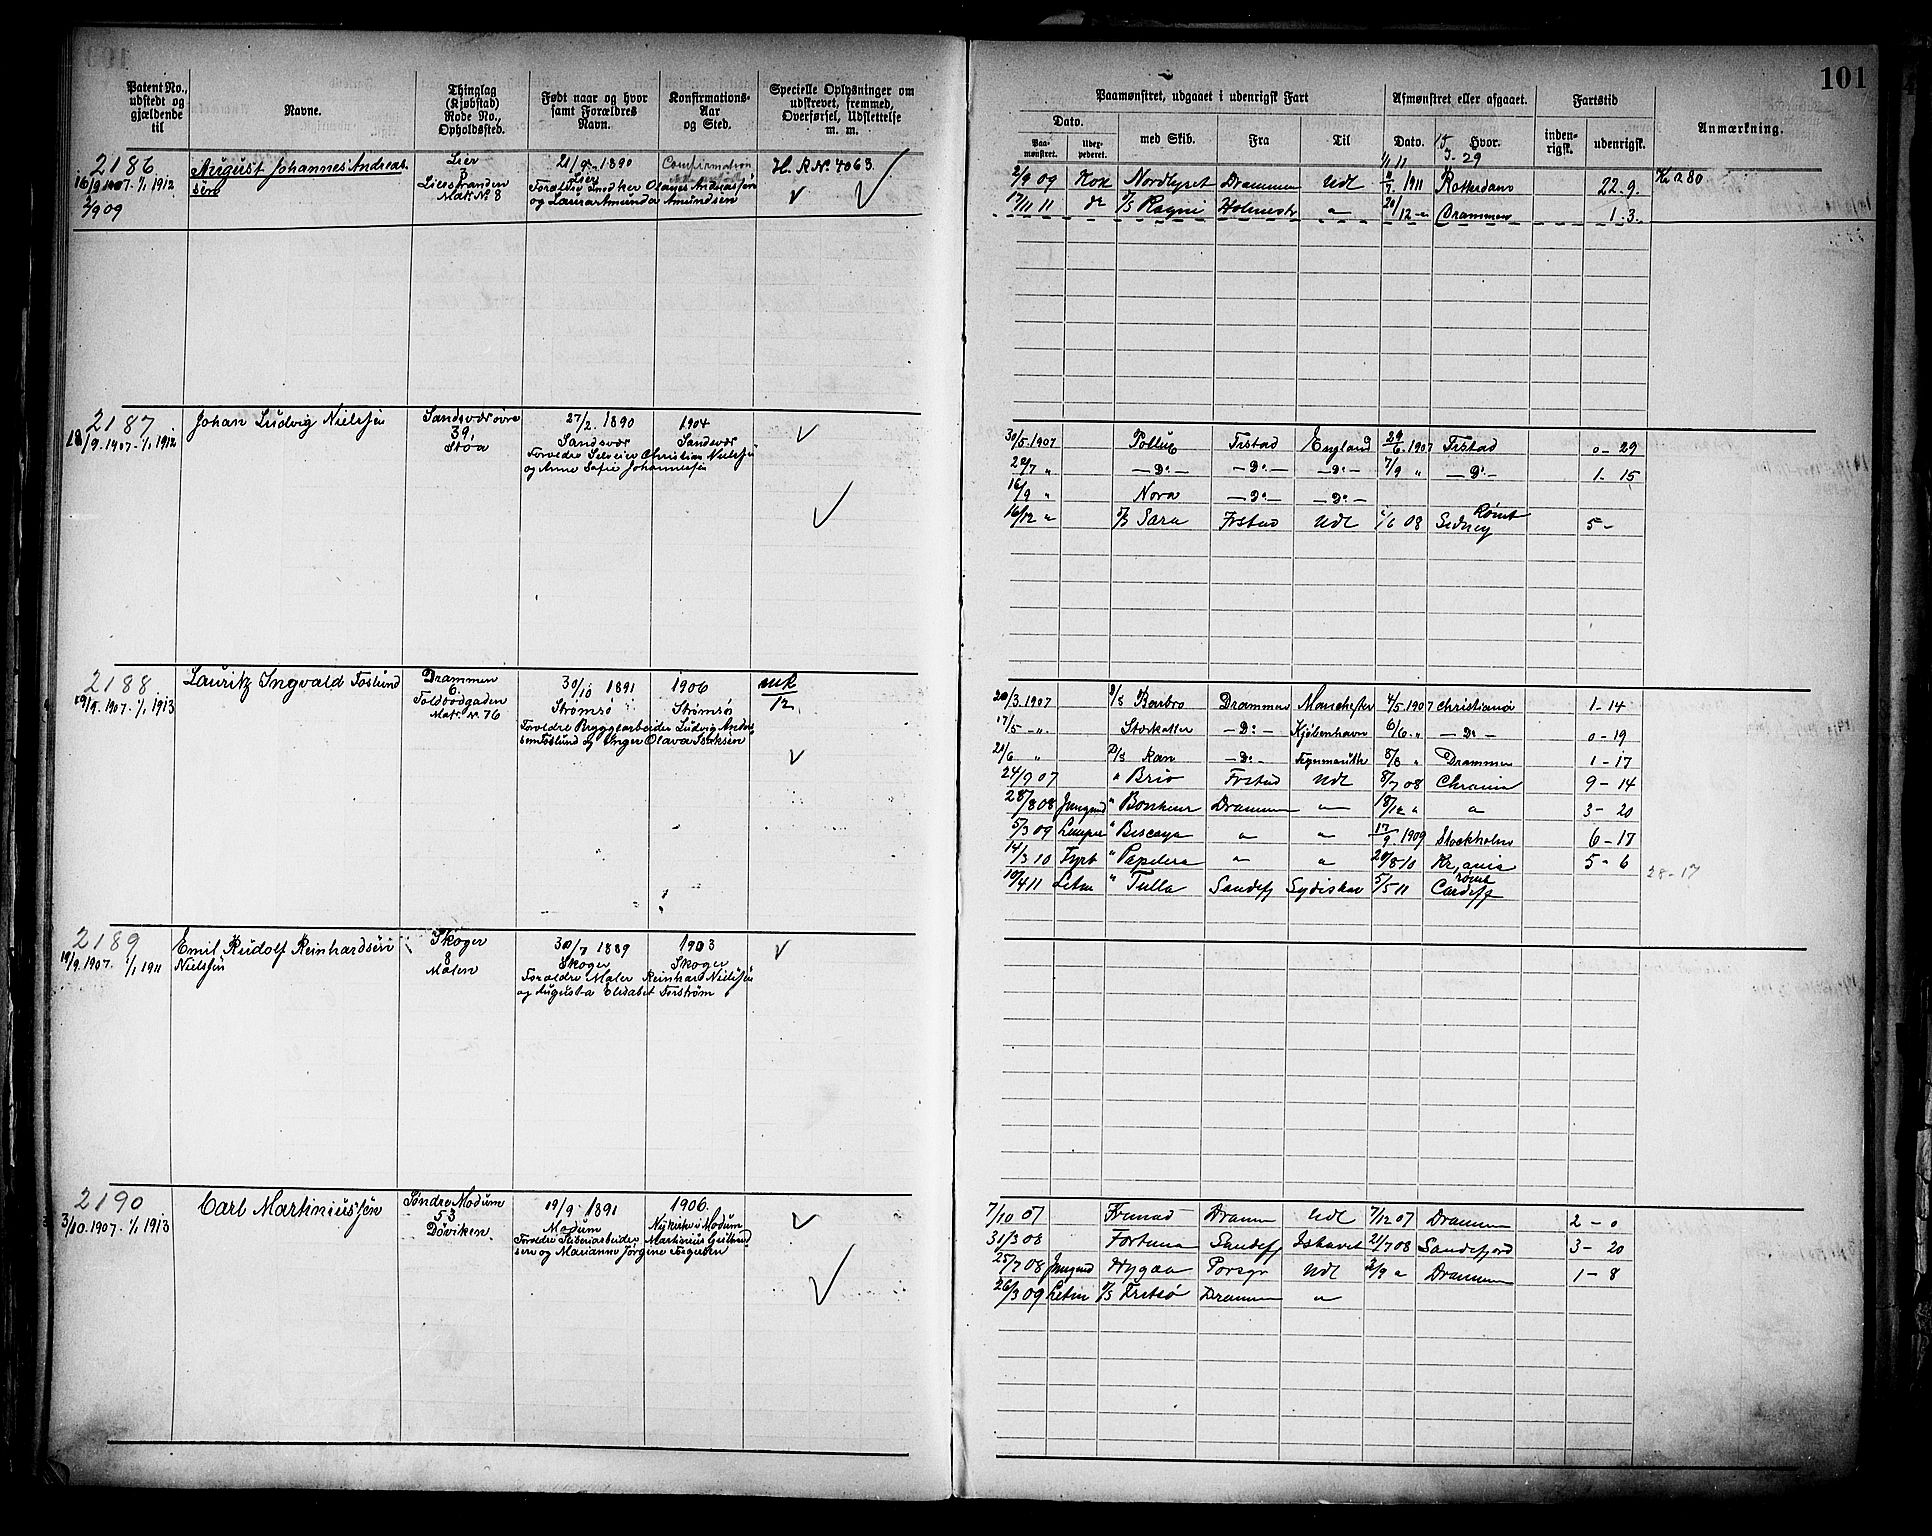 101
Patent No., udstedt og gjældende til
Navne.
Thinglag (Kjøbstad) Rode No., Opholdssted.
Født naar og hvor samt Forældres Navn.
Konfirmations-Aar og Sted.
Specielle Oplysninger om udskrevet, fremmed, Overførsel, Udslettelse m. m.
Paamønstret, udgaaet i udenrigsk Fart
Dato.
Paamønstret.
Uberpederet.
med Skib.
Fra
Til
Afmønstret eller afgaaet.
Dato.
Hvor.
Fartstid
indenrigsk.
udenrigsk.
Anmærkning.
2186
16/9 1907. 1/1 1912
2/9 09
August Johannes Andreassen
Lier
Lierstranden
Matr. No 8
21/9 1890
Lier
Forældre Snedker Olaves Andreassøn
og Laura Amunda Amundsen
Confirmation
H. R. Nr. 4063
2/9 09 Kok Nordlyset Drammen Udl 1911 Rotterdam 22 9. Kr 280
17/11 11 do S/S Ragni Holmestr " 20/12 - " Drammen 1. 3.
2187
/9. 1907. 1/1 1912
Johan Ludvig Nielsen
Sandsvær øvre
39.
Støa
27/2. 1890
Sandsvær
Forældre Selveier Christian Nielsen
og Anne Sofie Johannessen
1904
Sandsvær
30/5. 1907 Pollux Frstad England 29/6. 1907 Frstad 0 - 29
22/7 " — Do — — Do — — Do — 7/9 " — Do — 1 - 15
16/9 " Nora — Do — — Do —
16/12 " S/S Sara Frstad Udl 1/6 08 Sidney Rømt 5 -
2188
19/9. 1907. 1/1 1913
Lauritz Ingvald Foslund
Drammen
6.
Toldbodgaden
Matr. No. 76
30/10 1891
Strømsø
Forældre Bryggearbeider Ludvig Andersen Foslund og Inger Olava Isaksen
1906
Strømsø
mk
12
20/3. 1907 S/S Barbro Drammen Manchester 4/5. 1907 Christiania 1 - 14
17/5 - " Storkatten — Do — Kjøbenhavn 6/6. " — Do — 0 - 19
21/6 " D/S Ran — Do — 8/8 " Drammen 1 - 17
24/9 07 " Brio Frstad Udl 8/7 08 Chrania 9 - 14
28/8 08 Jungmd " Bonheur Drammen " 18/12 " " 3 - 20
5/3 09 Lemper " Biscaya " " 17/9. 1909 Stockholm 6 - 17
14/3 10 Fyrb " Papelera " " 20/8 10 Kr,ania 5 - 6
28 - 17
10/4 11 Letm " Tulla Sandefj Sydishav 5/5 11 Cardiff rømt
2189
19/9. 1907. 1/1 1911
Emil Rudolf Reinhardsen
Nielsen
Skoger
8
Møien
30/7 1889
Skoger
Forældre Maler Reinhard Nielsen
og Augusta Elisabet Forstrøm
1903
Skoger
2190
3/10. 1907. 1/1 1913
Carl Martiniussen
Søndre Modum
53
Døviken
19/9. 1891
Modum
Forældre Fliberiarbeider Martinius Gulbrandsen og Marianne Jørgine Figersen
1906.
Nykirke i Modum
7/10 07 Drammen Udl 7/12 07 Drammen 2 - 0
31/3 08 Fortuna Sandefj Ishavet 21/7 08 Sandefjord 3 - 20
25/7 08 Jungmd Hygæa Porsgr Udl 2/9 " Drammen 1 - 8
26/3 09 Letm S/S Fritsø Drammen "